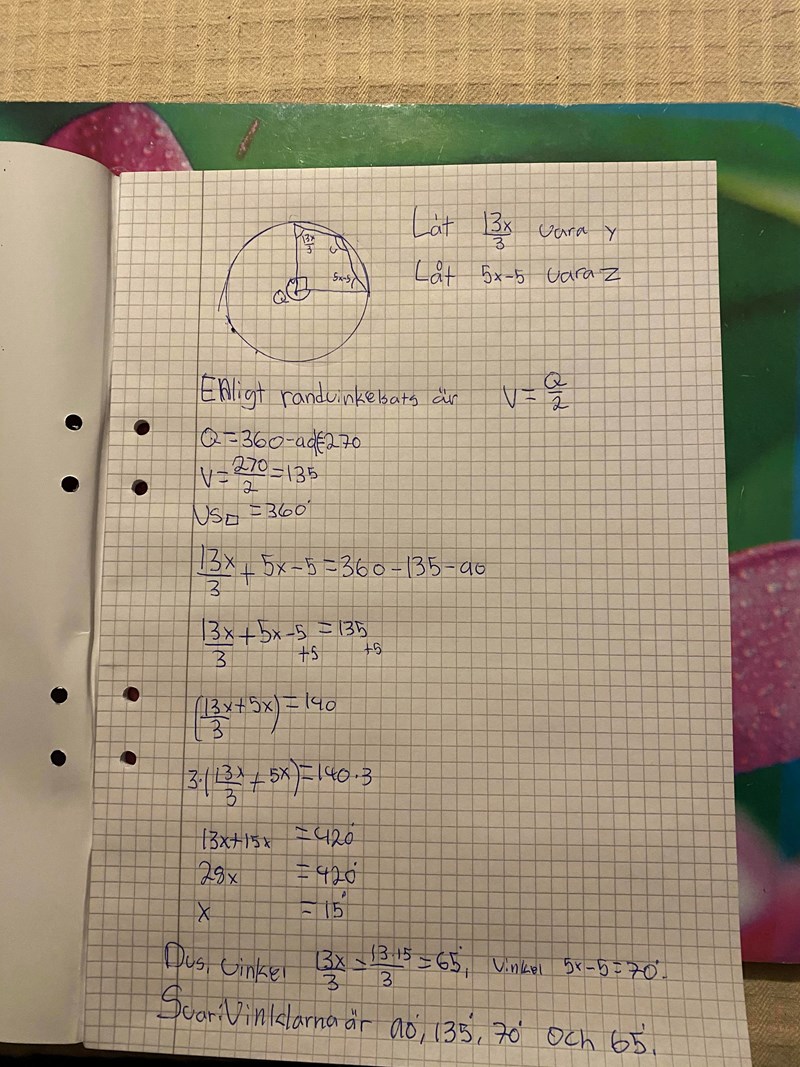 Låt 13x/3 vara y
Låt 5x-5 vara z
13x/3
v
5x-5
Q
Enligt randvinkelsats är V = Q/2
Q = 360-90=270
V = 270/2 = 135
VS□ = 360°
13x/3 + 5x-5 = 360-135-90
13x/3 + 5x-5 = 135
+5 +5
(13x/3 + 5x) = 140
3·(13x/3 + 5x) = 140·3
13x+15x = 420°
28x = 420°
x = 15°
Dvs, vinkel 13x/3 = 13·15/3 = 65°, vinkel 5x-5 = 70°.
Svar: Vinklarna är 90°, 135°, 70° och 65°.